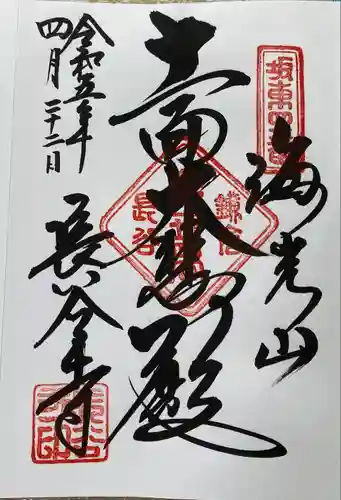 坂東四番
海光山
十一面大悲殿
鎌倉
長谷
長谷寺
令和五年
四月二十二日